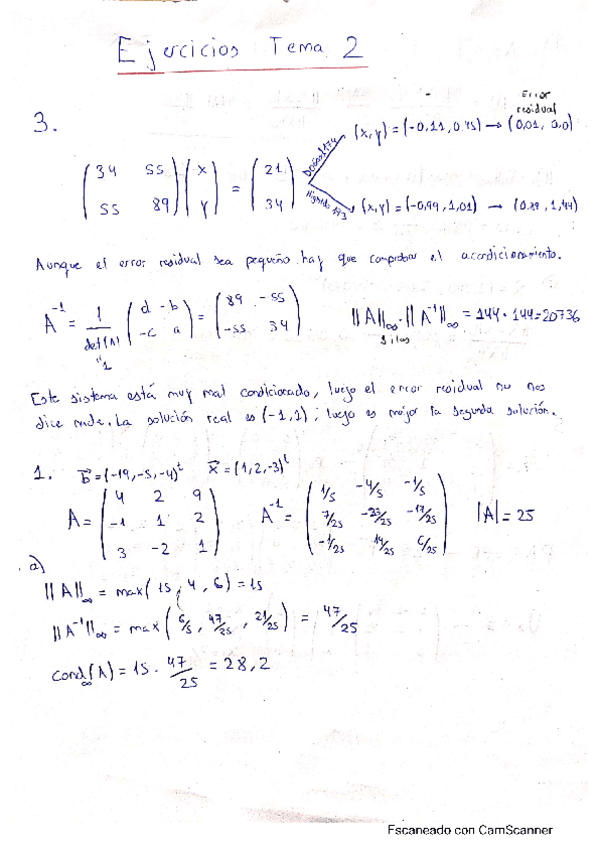 Ejercicios Tema 2
Error
residual
3.
(x,y) = (-0,11, 0,45) → (0,01, 0,0)
(34 55; 55 89) (x; y) = (21; 34)
(x,y) = (-0,99, 1,01) →
Aunque el error residual sea pequeño hay que comprobar el acondicionamiento.
A⁻¹ = 1/det(A) (d -b; -c a) = (89 -55; -55 34) ||A||∞ · ||A⁻¹||∞ = 144 · 144 = 20736
"1 filas
Este sistema está muy mal condicionado, luego el error residual no nos
dice nada. La solución real es (-1,1); luego es mejor la segunda solución.
1. b = (-19, -5, -4)ᵗ x = (1, 2, -3)ᵗ
A = (4 2 9; -1 1 2; 3 -2 1) A⁻¹ = (1/5 -4/5 -1/5; 7/25 -23/25 -17/25; -1/25 14/25 6/25) |A| = 25
a)
||A||∞ = max(15, 4, 6) = 15
||A⁻¹||∞ = max(6/5, 47/25, 21/25) = 47/25
cond∞(A) = 15 · 47/25 = 28,2
Escaneado con CamScanner